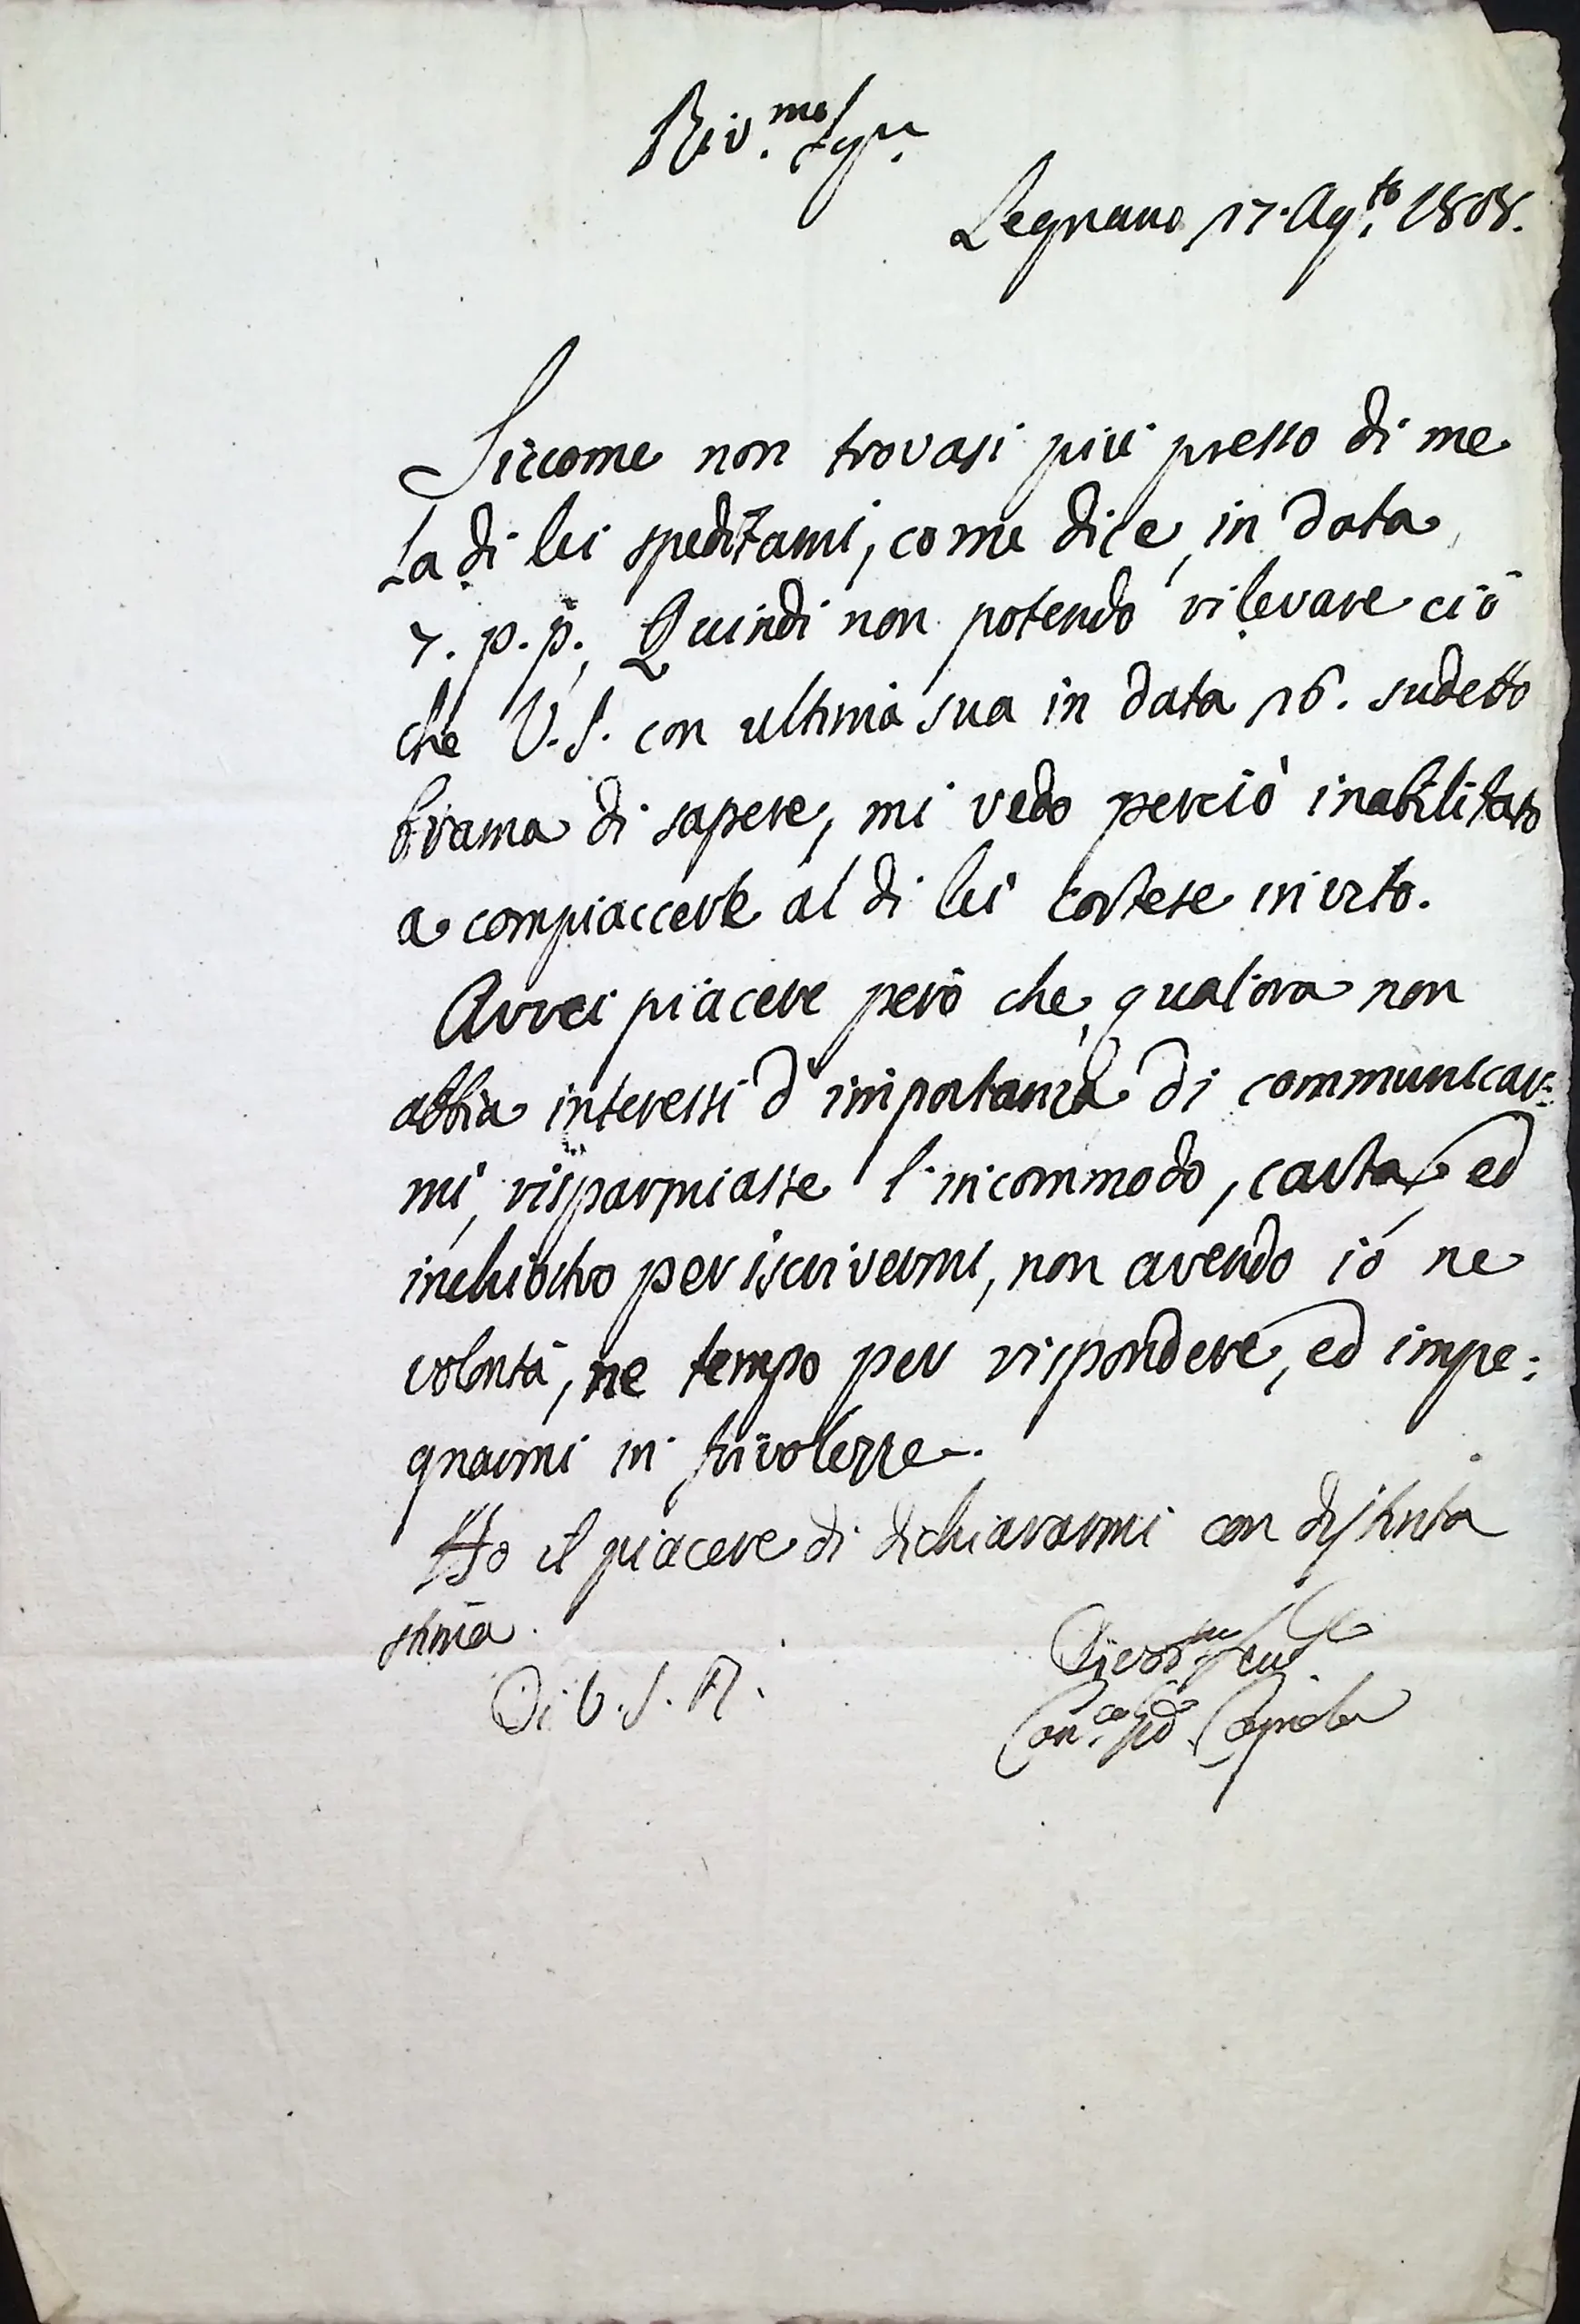 Riv.mo Sigr.
Legnano 17. Ag.to 1808.
Siccome non trovasi più presso di me
La di lei speditami, come dice, in data
7. p. p. Quindi non potendo rilevare ciò
che V. S. con ultima sua in data 16. sudetto
brama di sapere, mi vedo perciò inabilitato
a compiaccerle al di lei cortese invito.
Avrei piacere però che, qualora non
abbia interessi d'importanza di communicar=
mi, risparmiasse l'incommodo, carta, ed
inchiostro per iscrivermi, non avendo io ne
volontà, ne tempo per rispondere, ed impe=
gnarmi in frivolezze.
Ho il piacere di dichiararmi con distinta
stima.
Di V. S. R.